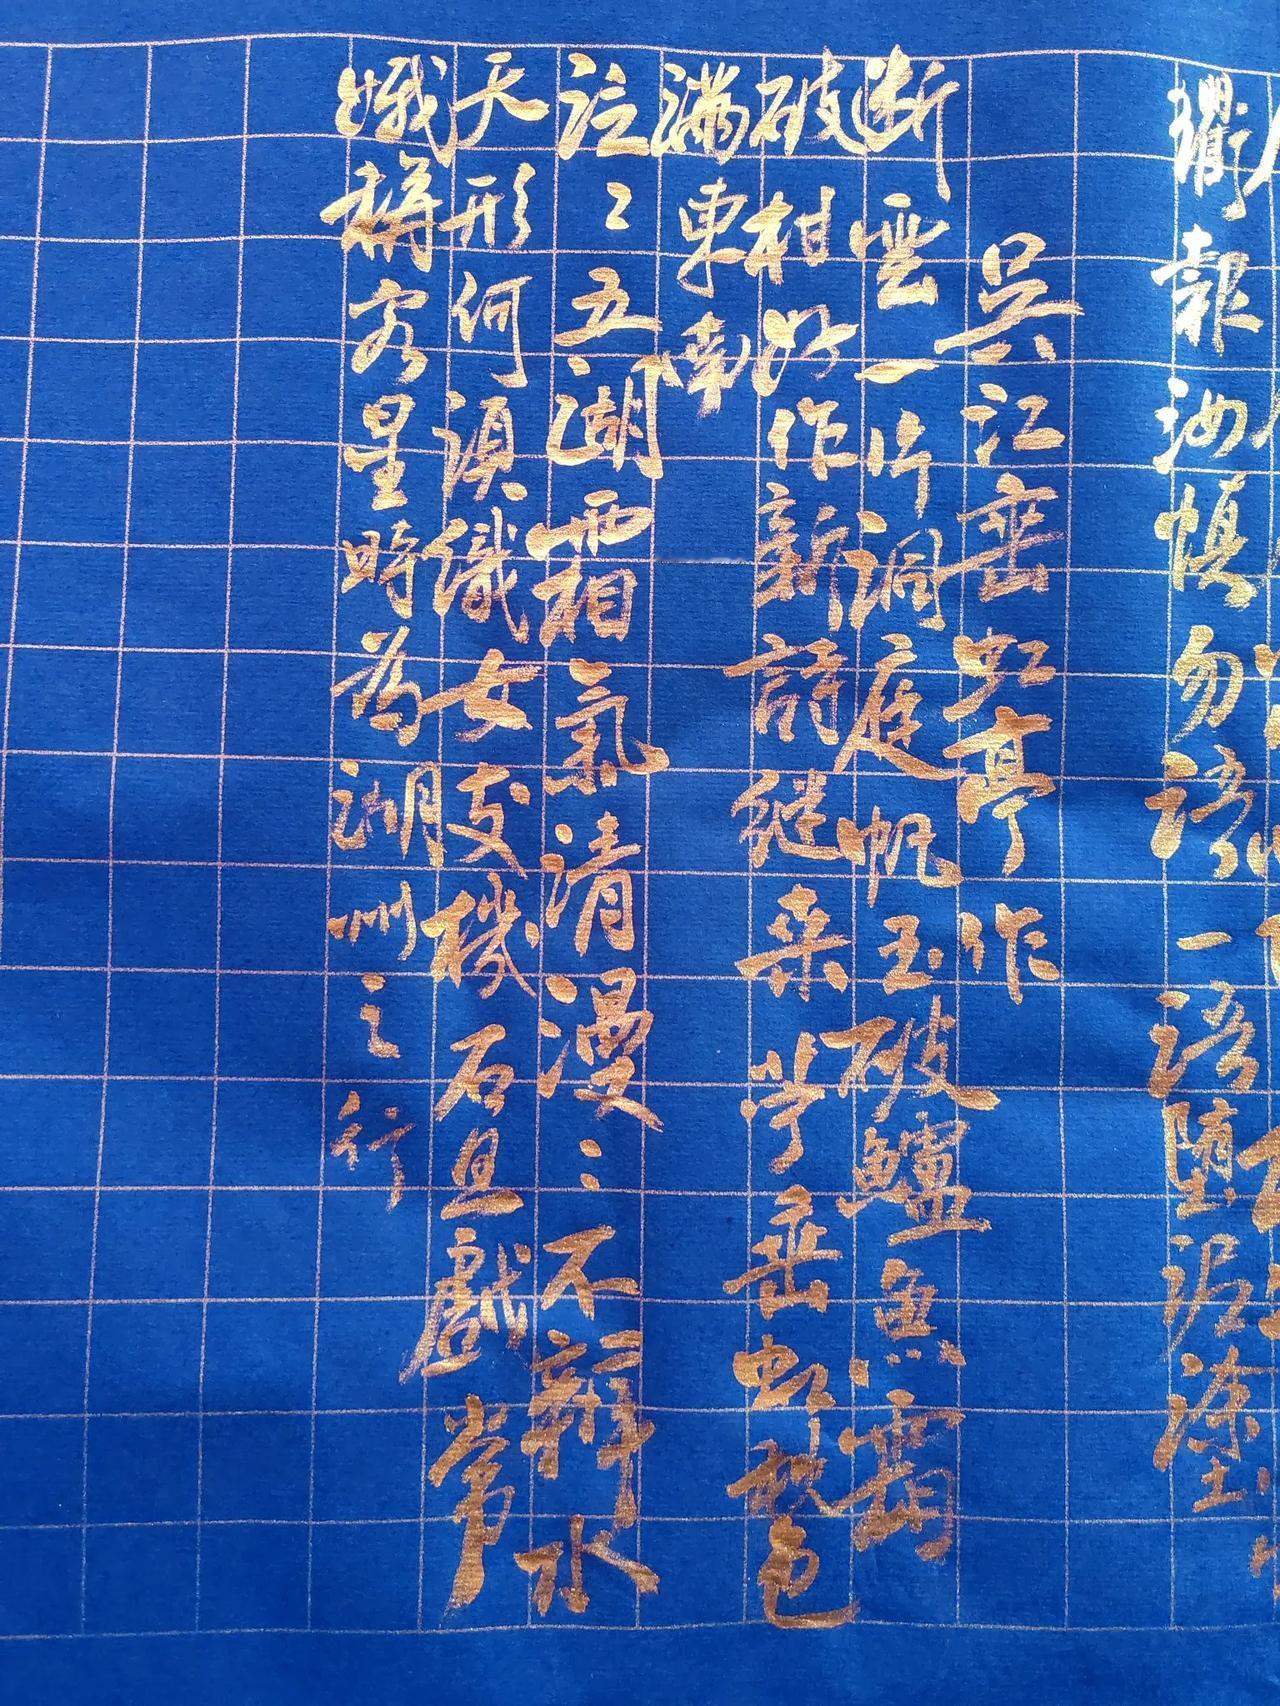 衢報汝慎勿語一語墮泥塗
吳江垂虹亭作
断雲一片洞庭帆玉破鱸魚霜
破柑好作新詩継桒苧垂虹秋色
滿東南
泛〻五湖霜氣清漫〻不辨水
天形何須織女支機石且戲常
娥稱客星時為湖州之行